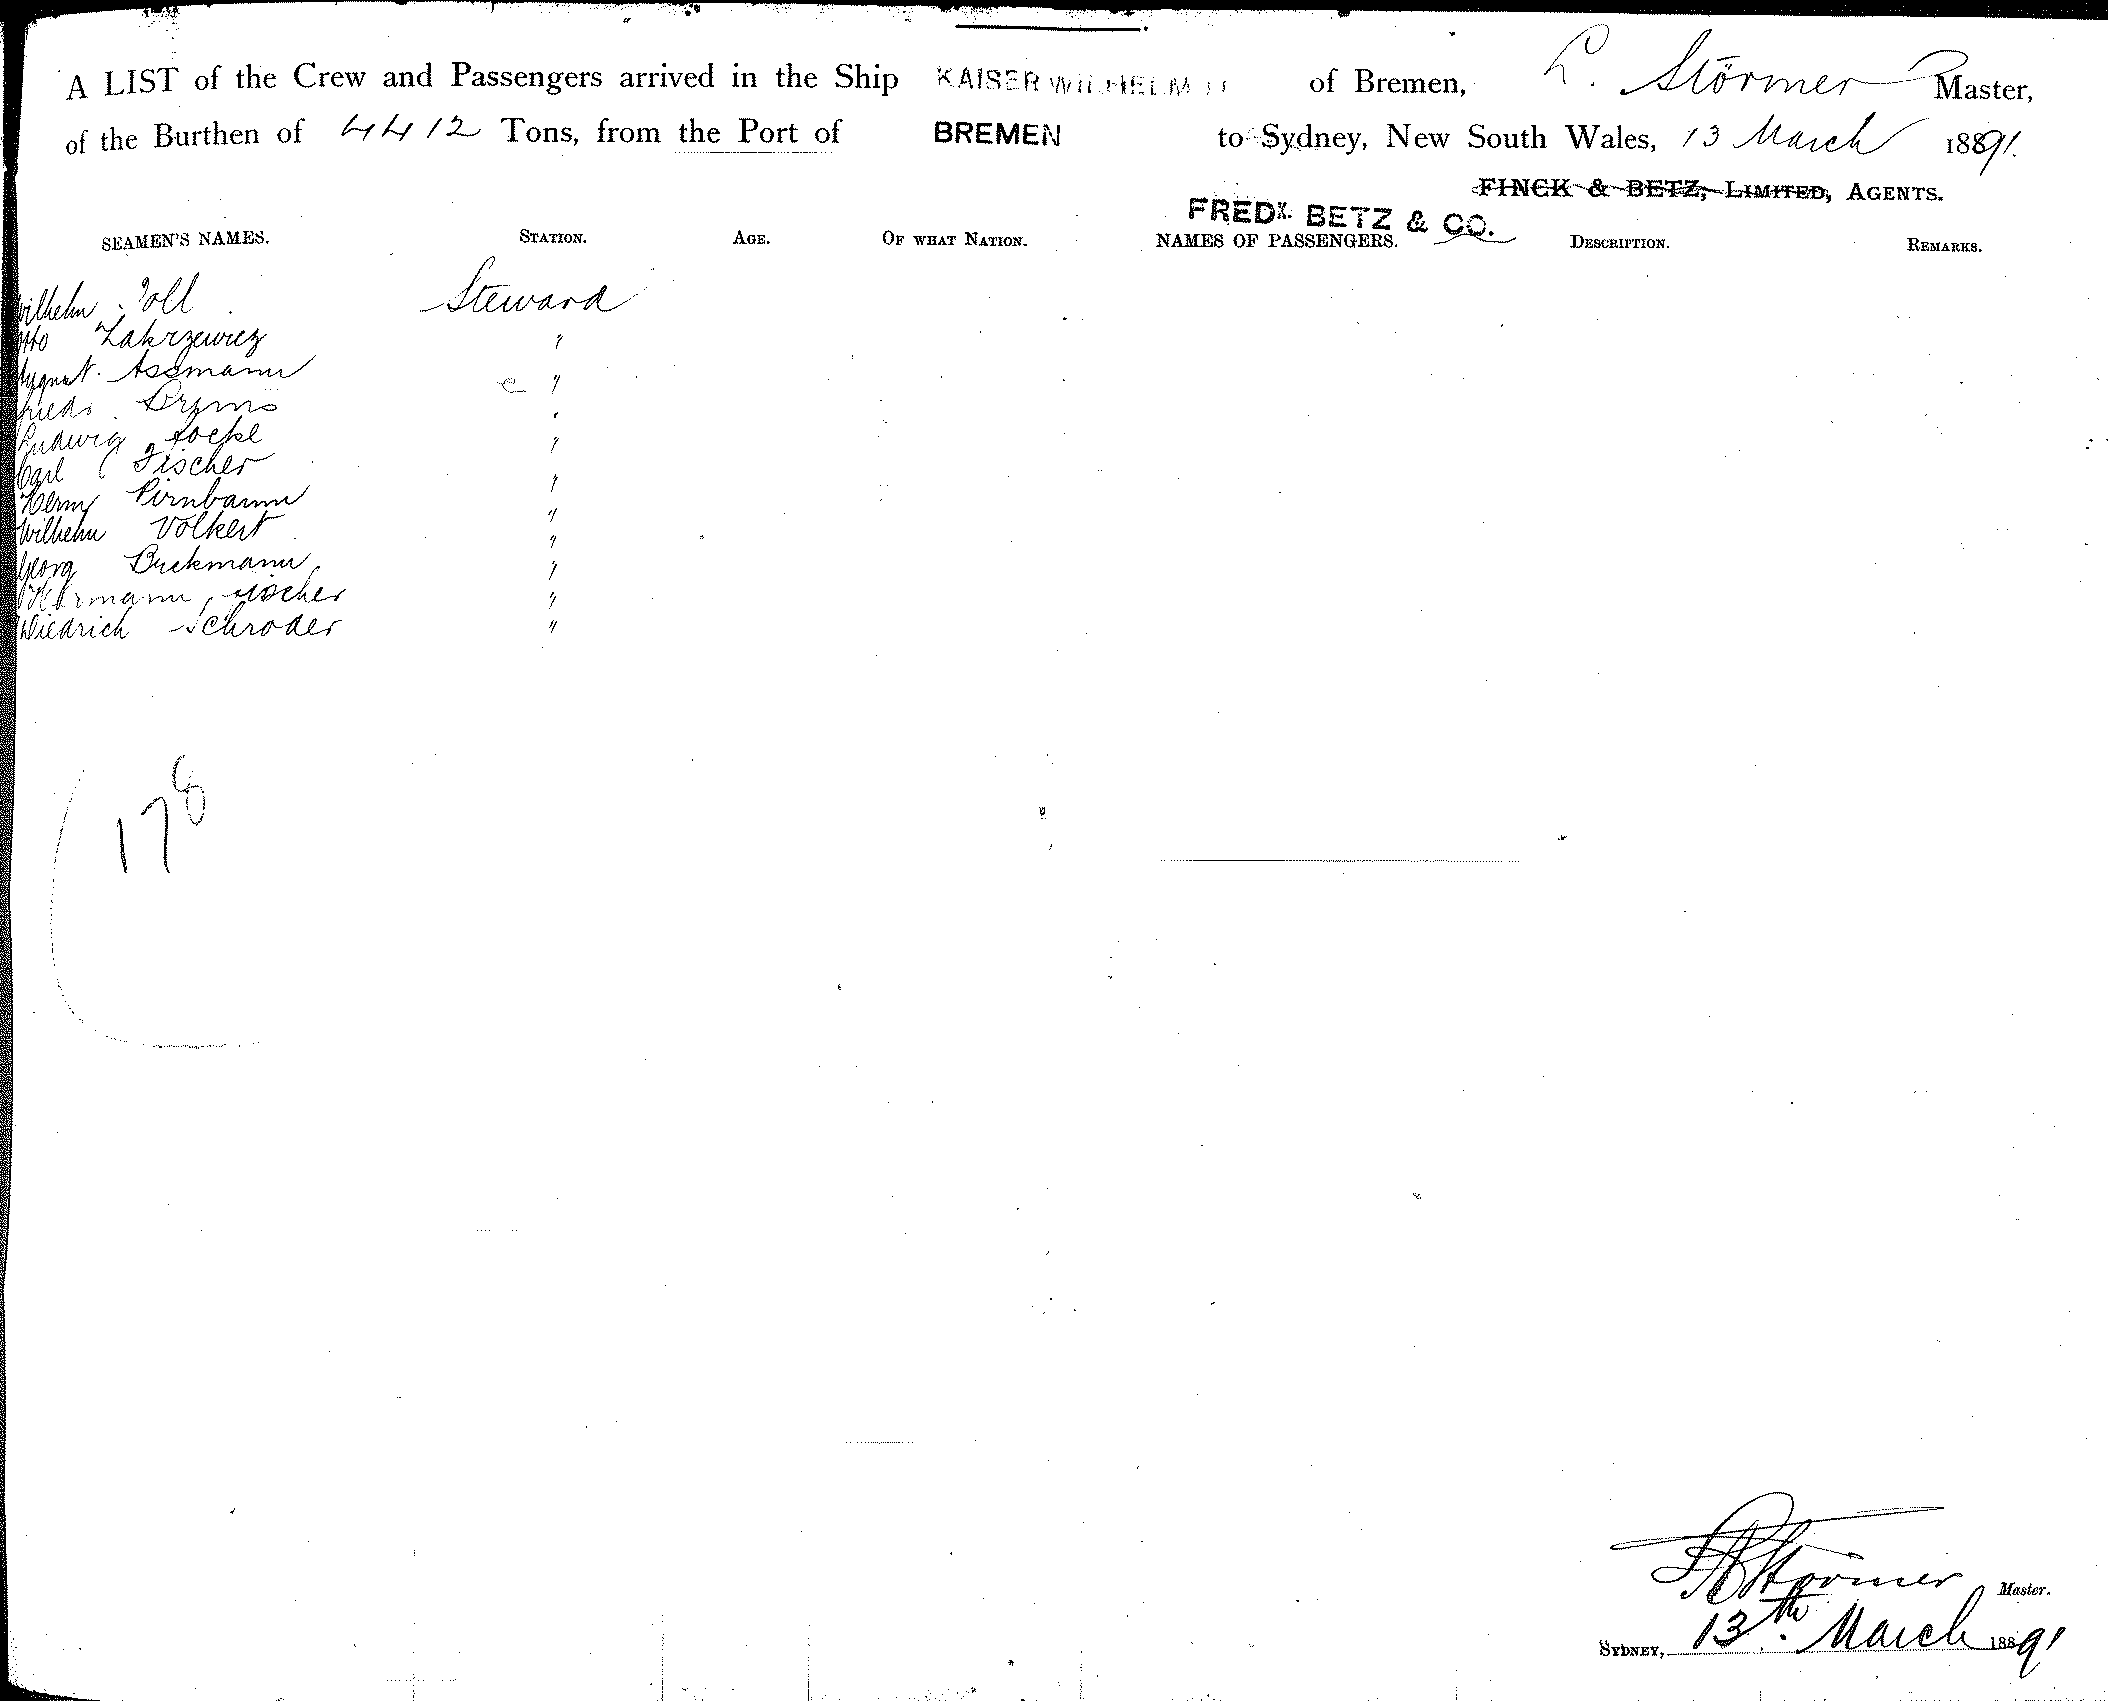 A LIST of the Crew and Passengers arrived in the Ship KAISER WILHELM II of Bremen, L. Störmer Master,
of the Burthen of 4412 Tons, from the Port of BREMEN to Sydney, New South Wales, 13 March 1891.
FINCK & BETZ, LIMITED, AGENTS.
FREDK. BETZ & CO.
SEAMEN'S NAMES. STATION. AGE. OF WHAT NATION. NAMES OF PASSENGERS. DESCRIPTION. REMARKS.
Wilhelm Steward
Otto Zakrzewicz "
August Assmann "
"
Ludwig "
Carl Fischer "
Herm Pirnbaum "
Wilhelm Volkert "
Georg Buckmann "
Hermann Fischer "
Diedrich Schroder "
178
Störmer Master.
SYDNEY, 13th March 1891